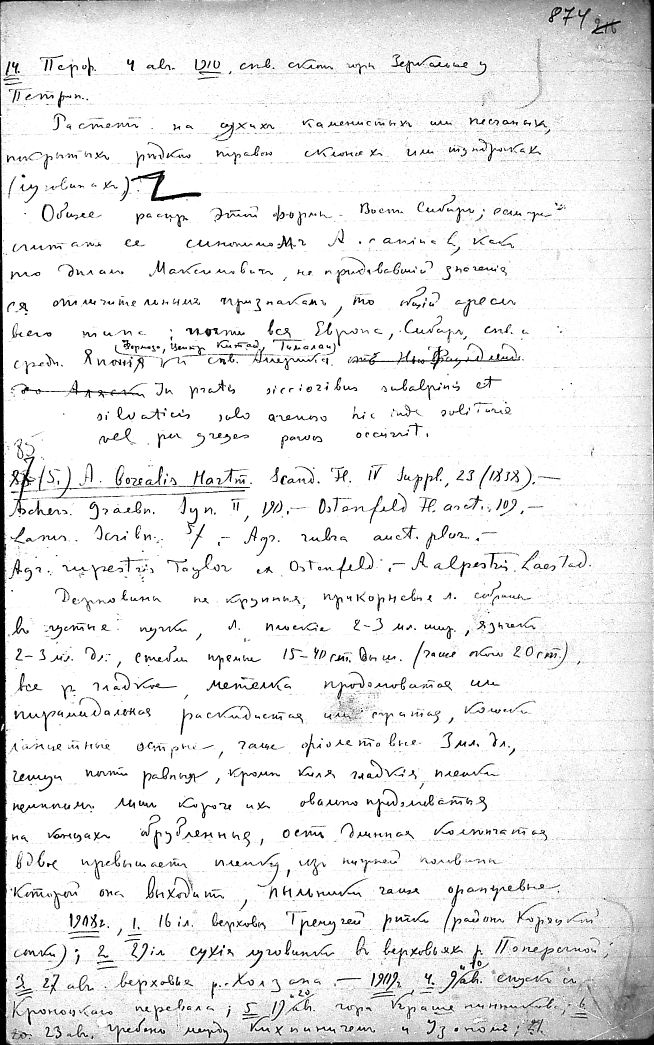 874
14. Петроп. 4 авг. 1910, свв. склон при Зеркальце у
Петроп.
Растет на сухих каменистых или песчаных,
покрытых редкою травою склонах или тундрочках
(луговинах)
Общее распр. этой формы. Вост. Сибирь; если
считать ее синонимомъ A. canina L, как
то делал Максимович, не придававший значения
ея отличительным признакам, то общий ареал
всего типа: почти вся Европа, Сибирь, свв. и
(Формоза, центр. Китай, Гималаи)
средн. Япония и свв. Америка,
до Аляски In pratis siccioribus subalpinis et
silvaticis solo arenoso hic inde solitarie
vel per greges parvos occurrit.
85
(5.) A. borealis Hartm. Scand. Fl. IV Suppl., 23 (1838).—
Aschers. Graebn. Syn. II, 190.— Ostenfeld Fl. arct. 109.—
Lams. Scribn. Agr. rubra auct. plur.—
Agr. rupestris Taylor ex Ostenfeld.— A alpestris Laestad.
Дерновины не крупныя, прикорневые л. собраны
въ густые пучки, л. плоскіе 2-3 мл. шир., язычек
2-3 мл. дл., стебли прямые 15-40 ст. выш. (чаще около 20 ст),
все р. гладкое, метелка продолговатая или
пирамидальная раскидистая или сжатая, колоски
ланцетные острые, чаще фіолетовые 3 мл. дл.,
чешуи почти равныя, кроме киля гладкія, пленки
немногим лишь короче их овально продолговатыя
на концах обрубленныя, ость длинная коленчатая
вдвое превышает пленку, из нижней половины
которой она выходит, пыльники чаще оранжевые.
1908г., 1. 16 іл. верховья Тренучей речки (район Коряцкой
сопки); 2. 29 іл сухія луговинки в верховьях р. Поперечной;
3. 27 авг. верховья р. Холзана.— 1909, 4. 9/10 авг. спуск с
Кроноцкаго перевала; 5. 19/20 авг. гора Крашенинникова; 6.
23 авг. гребень между Кихпинычем и Узоном;